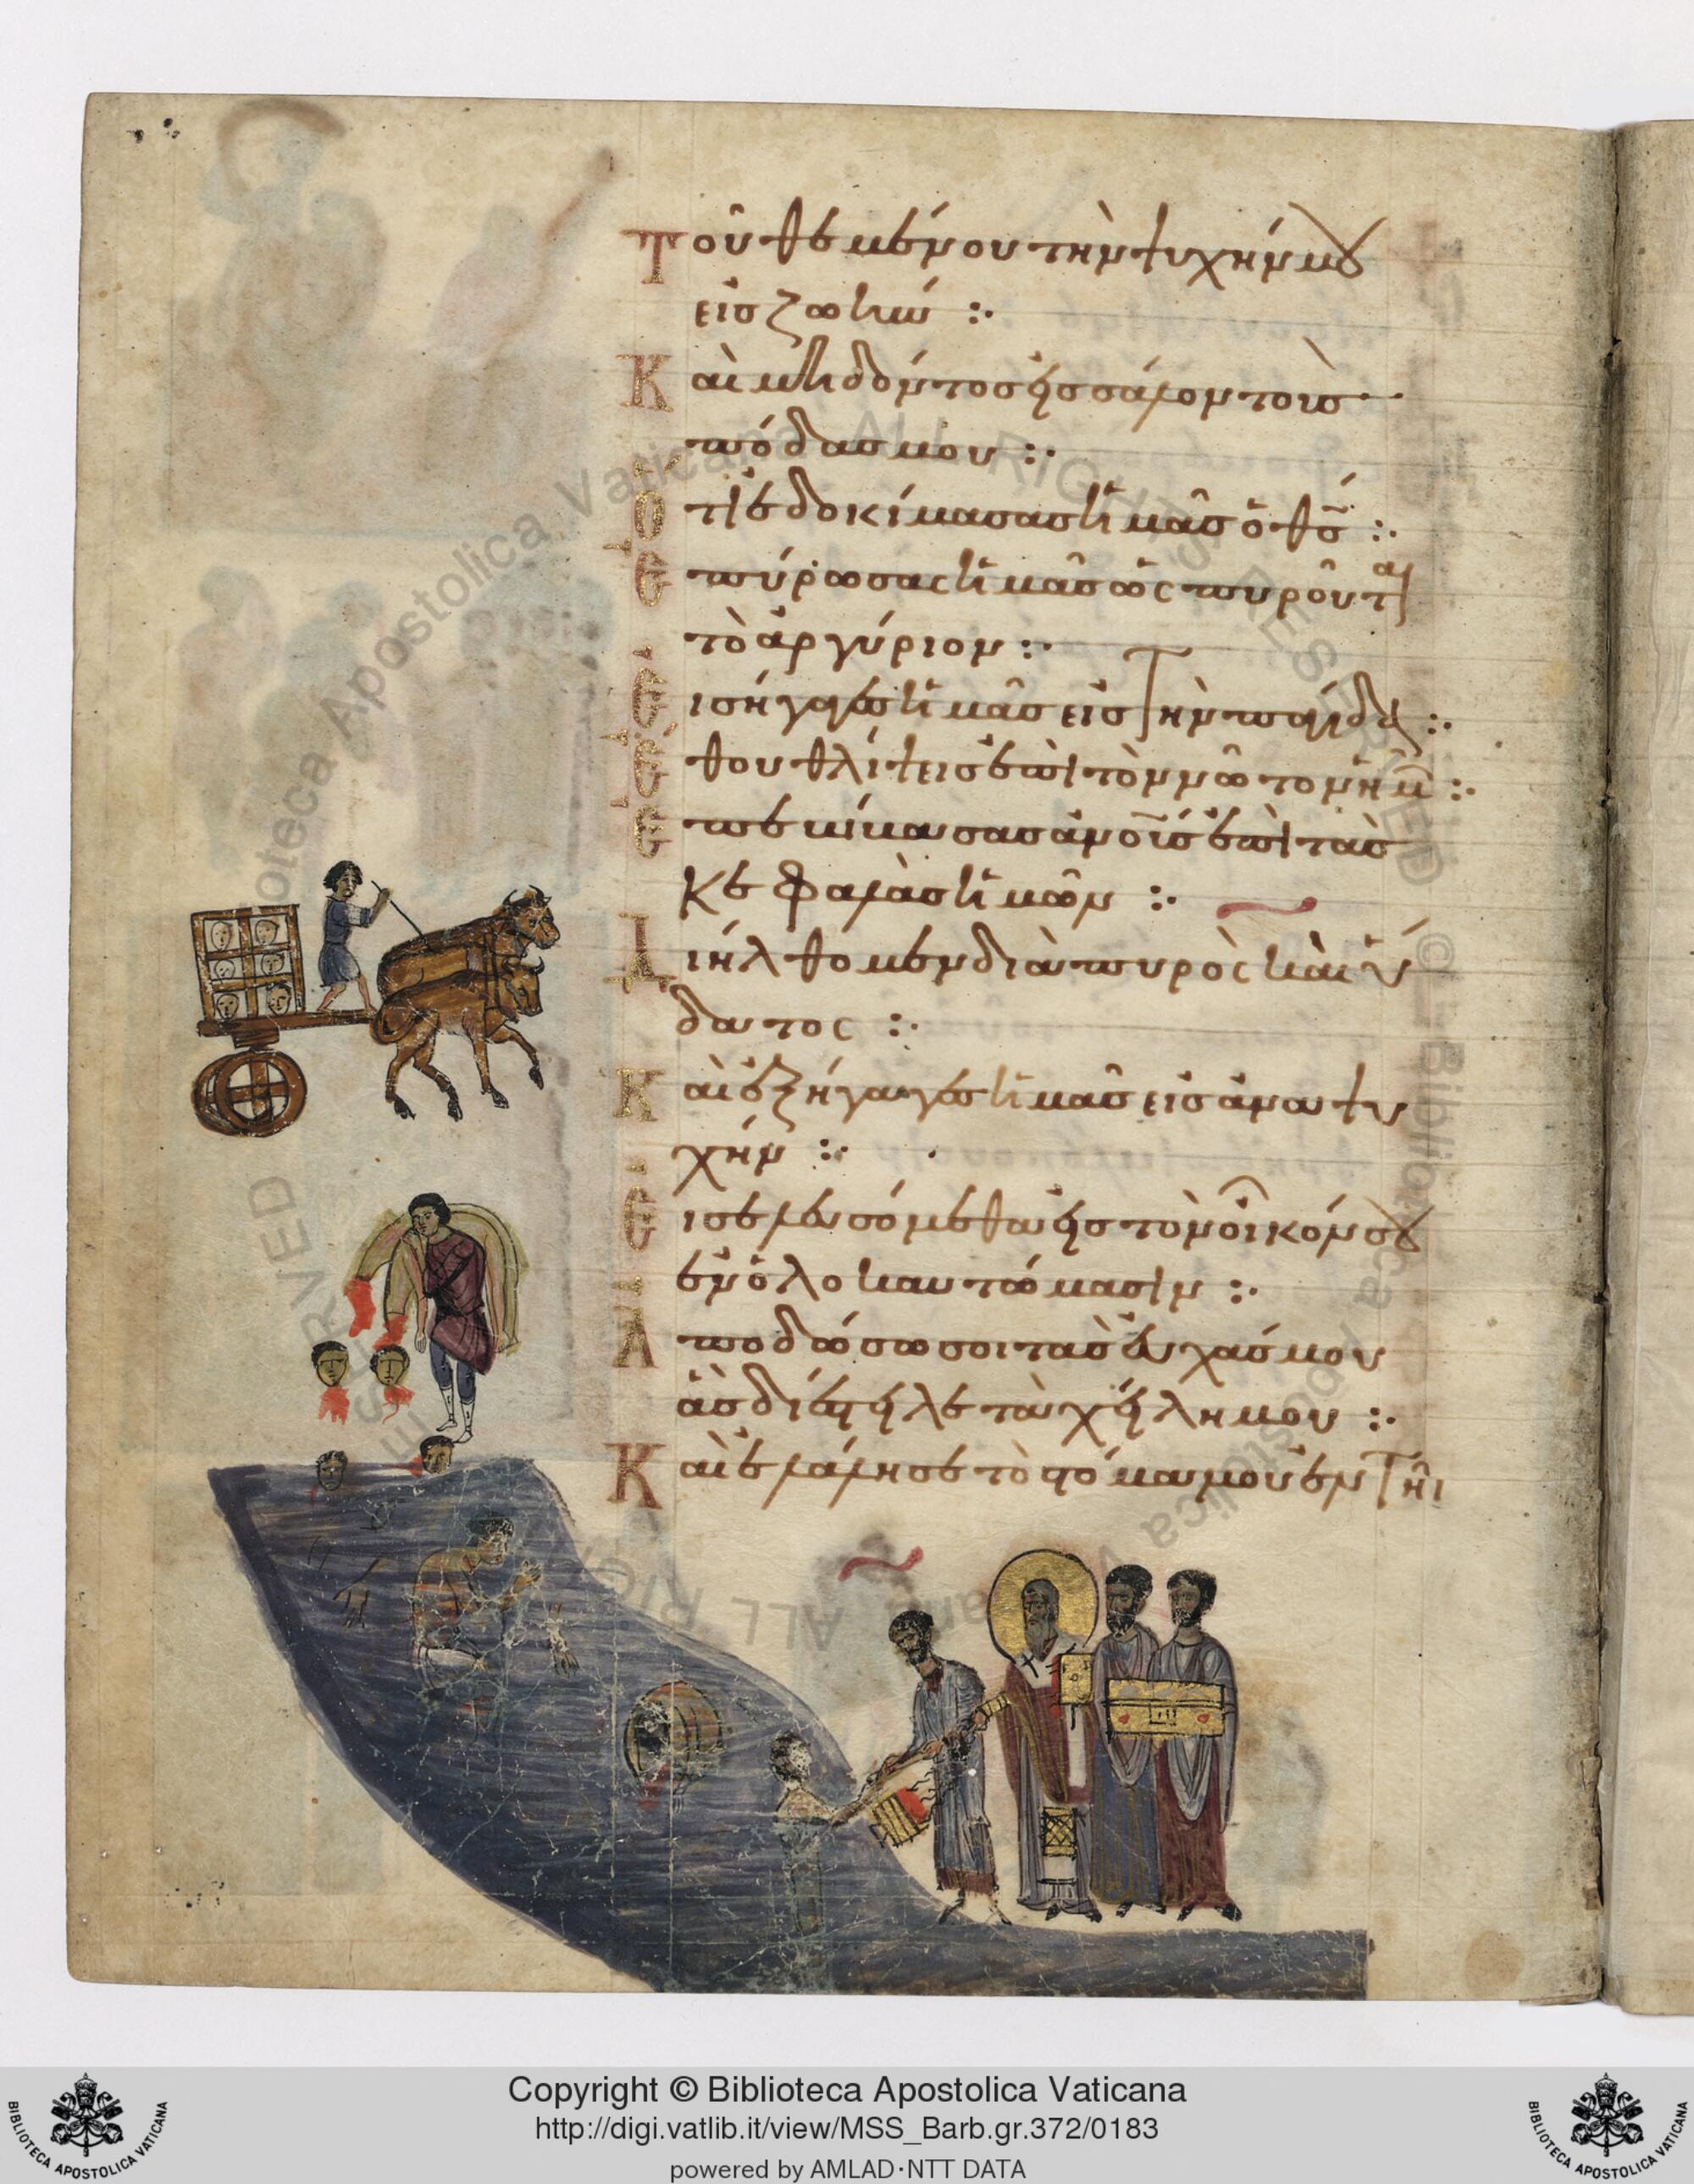 Τοῦ θεμένου τὴν ψυχήν μου
εἰς ζωήν :·
Καὶ μὴ δόντος εἰς σάλον τοὺς
πόδας μου :·
Ὅτι ἐδοκίμασας ἡμᾶς ὁ θς :·
Ἐπύρωσας ἡμᾶς ὡς πυροῦται
τὸ ἀργύριον :·
Εἰσήγαγες ἡμᾶς εἰς τὴν παγίδα :·
Ἔθου θλίψεις ἐπὶ τὸν νῶτον ἡμ :·
Ἐπεβίβασας ἀνους ἐπὶ τὰς
κεφαλὰς ἡμῶν :·
Διήλθομεν διὰ πυρὸς καὶ ὕ
δατος :·
Καὶ ἐξήγαγες ἡμᾶς εἰς ἀναψυ
χήν :·
Εἰσελεύσομεθα εἰς τὸν οἶκόν σου
ἐν ὁλοκαυτώμασιν :·
Ἀποδώσω σοι τὰς εὐχάς μου
ἃς διέστειλε τὰ χείλη μου :·
Καὶ ἐλάλησε τὸ στόμα μου ἐν τῆι
Copyright © Biblioteca Apostolica Vaticana
http://digi.vatlib.it/view/MSS_Barb.gr.372/0183
powered by AMLAD·NTT DATA
BIBLIOTECA APOSTOLICA VATICANA
BIBLIOTECA APOSTOLICA VATICANA
© Biblioteca Apostolica Vaticana ALL RIGHTS RESERVED